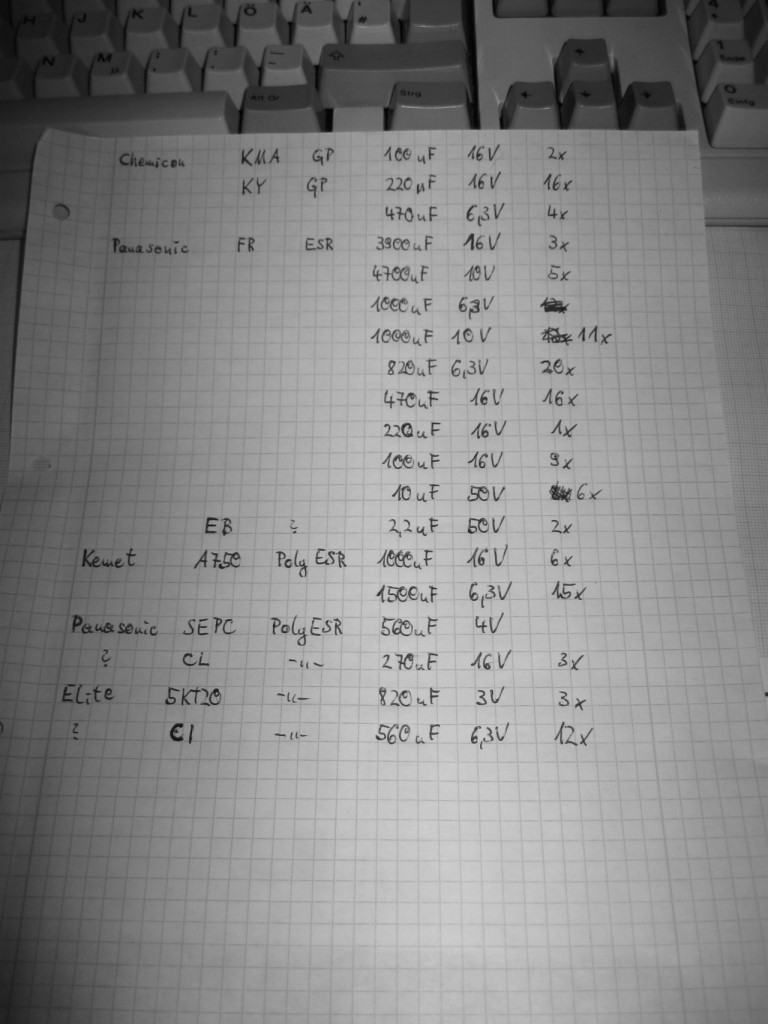 H J K L Ö Ä
N M µ ; : _
Alt Gr Strg
1 Ende
0 Einfg
Chemicon KMA GP 100uF 16V 2x
KY GP 220µF 16V 16x
470uF 6,3V 4x
Panasonic FR ESR 3900uF 16V 3x
4700uF 10V 5x
1000uF 6,3V
1000uF 10V 11x
820uF 6,3V 20x
470uF 16V 16x
220uF 16V 1x
100uF 16V 9x
10uF 50V 6x
EB ? 2,2uF 50V 2x
Kemet A750 Poly ESR 1000uF 16V 6x
1500uF 6,3V 15x
Panasonic SEPC Poly ESR 560uF 4V
? CL -"- 270uF 16V 3x
Elite 5KT20 -"- 820uF 3V 3x
? CI -"- 560uF 6,3V 12x